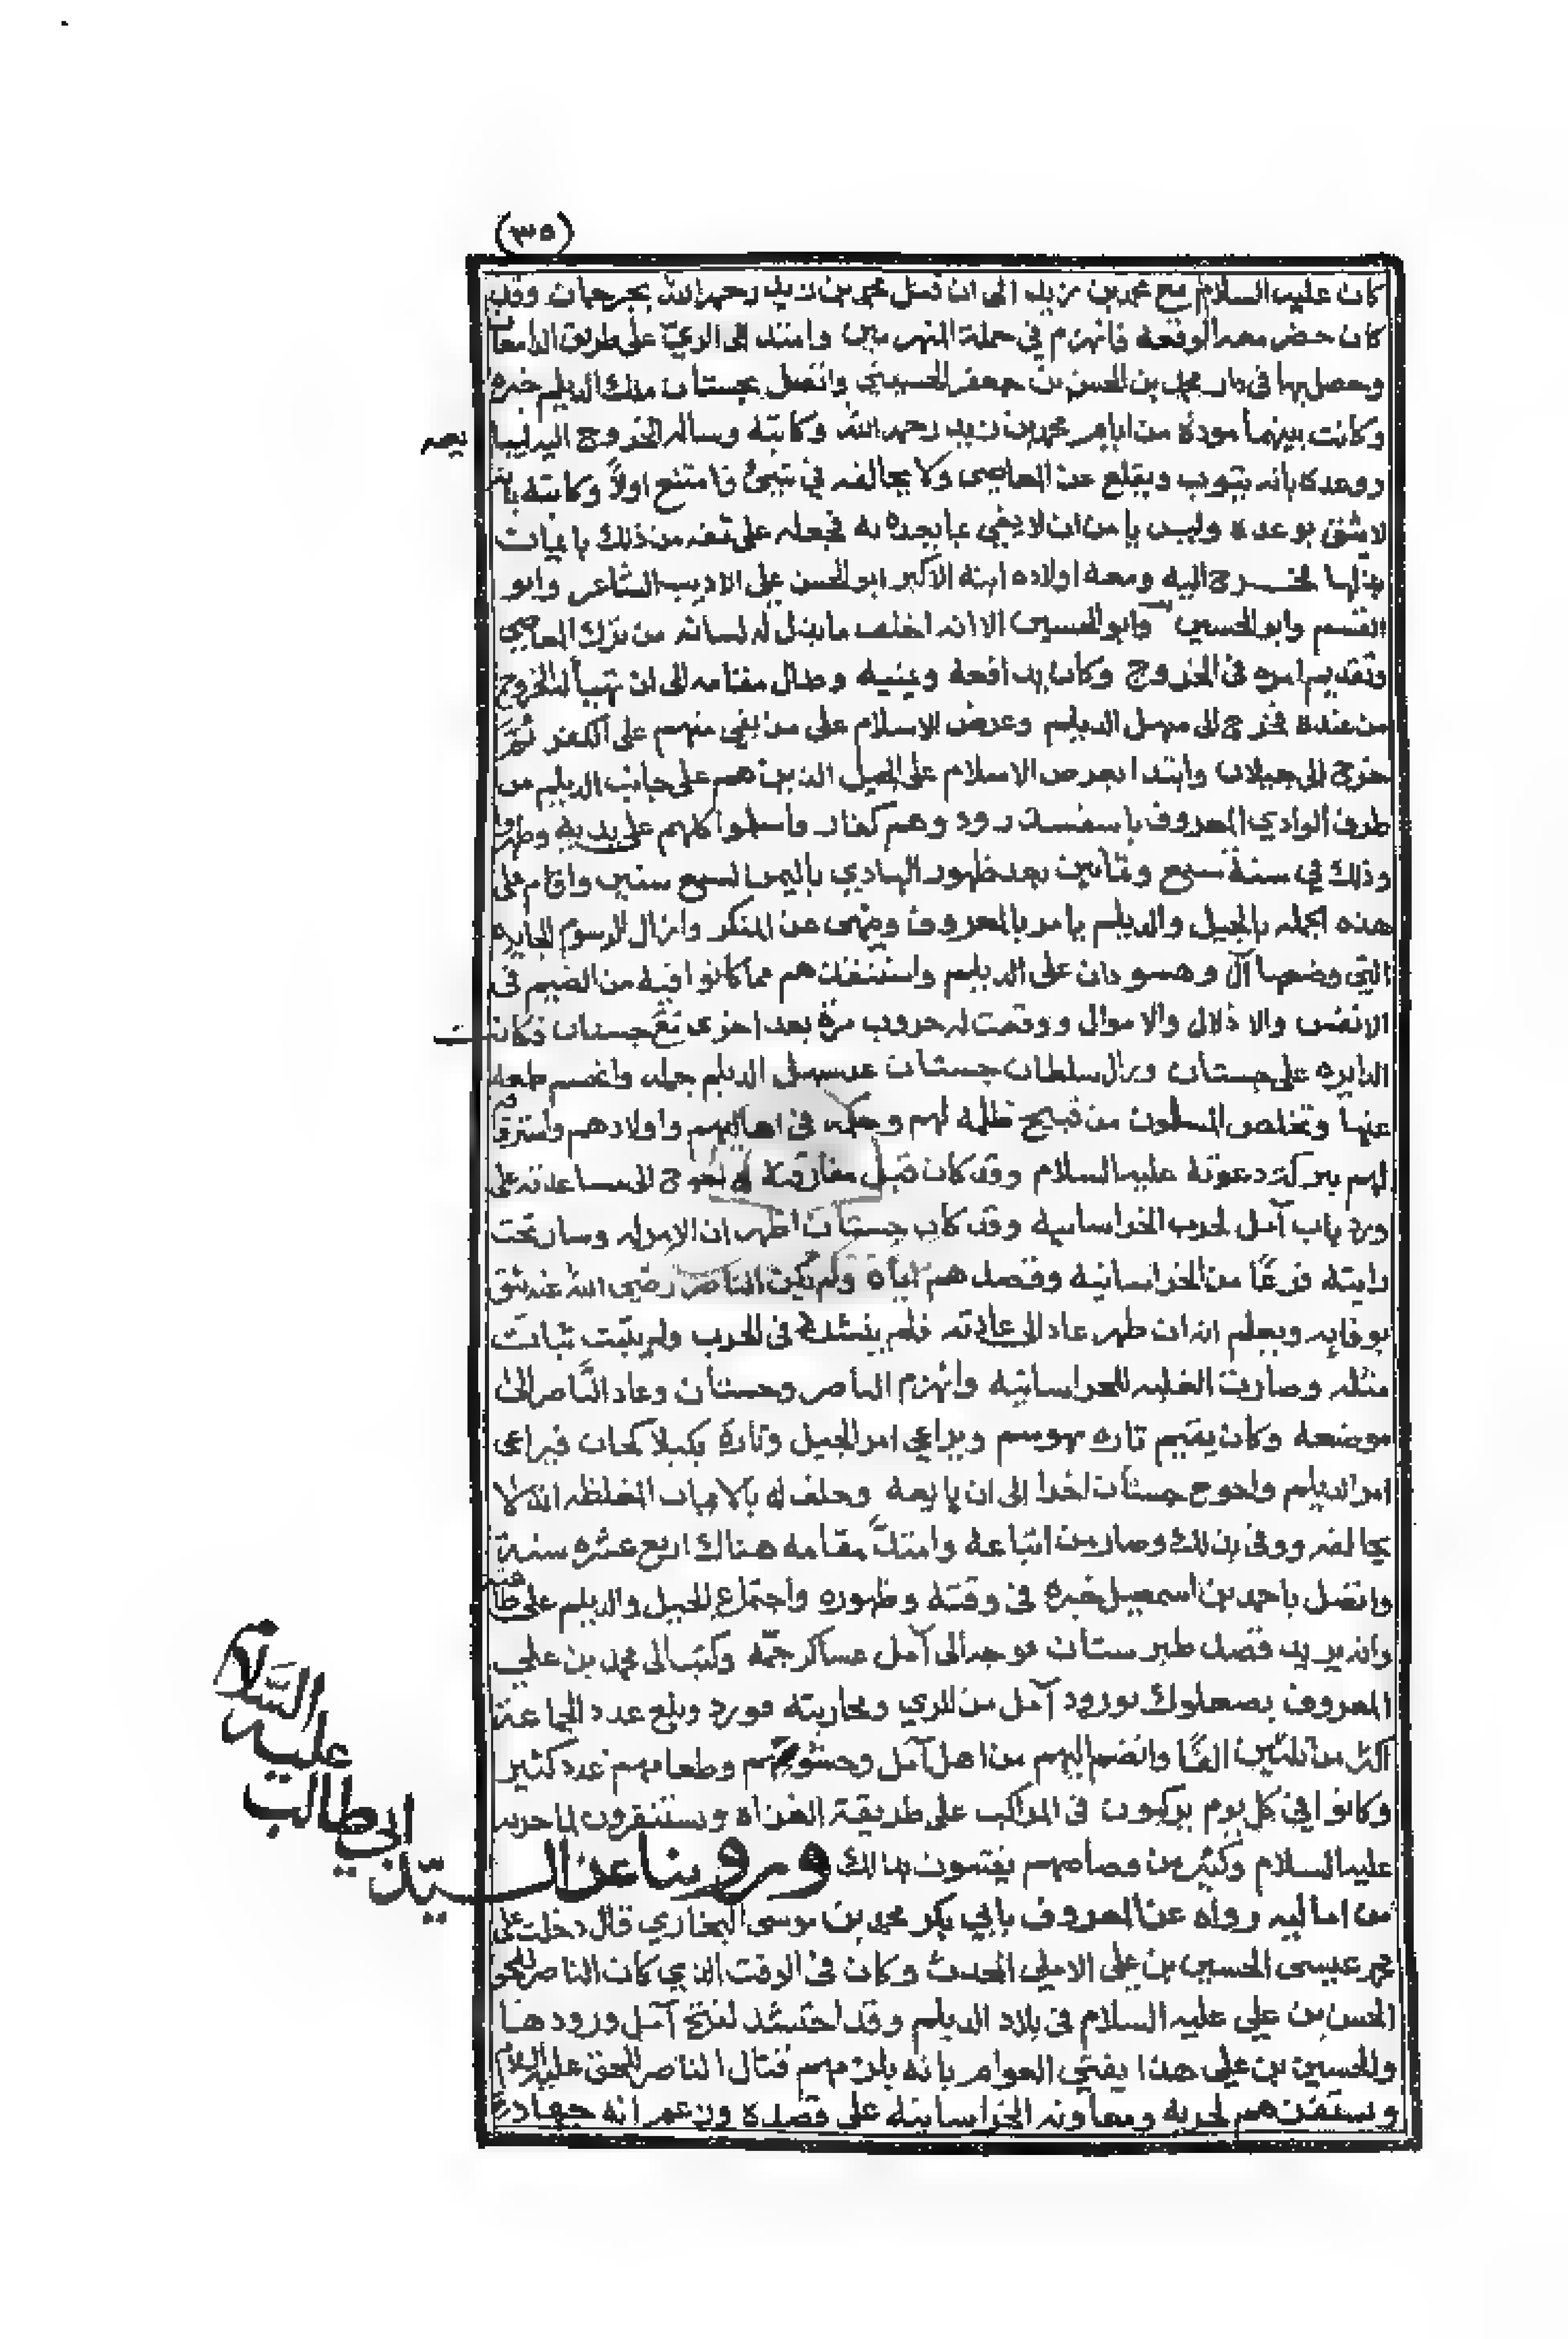 (٣٥)
كان عليه السلام مع محمد بن زيد الى ان قتل محمد بن زيد رحمه الله بجرجان وقد
كان حضر معه الوقعة فانهزم في جملة المنهزمين وامتد الى الري على طريق الدامغا
وحصل بها في دار محمد بن الحسن بن جعفر الحسيني واتصل بجستان ملك الديلم خبره
وكانت بينهما مودة من ايام محمد بن زيد رحمه الله وكاتبه وساله الخروج اليه ليبا يعه
ووعده بانه يتوب ويقلع عن المعاصي ولا يخالفه في شيئ فامتنع اولاً وكاتبه بانه
لايثق بوعده وليس يا من ان لايفي بما يعده به فجعله على ثقه من ذلك بايمان
بذلها فخرج اليه ومعه اولاده ابنه الاكبر ابو الحسن علي الاديب الشاعر وابو
القسم وابو الحسين وابو الحسين الا انه اخلف ما بذل له لسانه من ترك المعاصي
وتقديم امره في الخروج وكان يدافعه ويمنيه وطال مقامه الى ان تهيأ له الخروج
من عنده فخرج الى سهل الديلم وعرض الاسلام على من بقي منهم على الكفر ثم
خرج الى جيلان وابتدا بعرض الاسلام على الجيل الذين هم على جانب الديلم من
طرف الوادي المعروف باسفسد رود وهم كفار واسلموا كلهم على يديه وظهر
وذلك في سنة سبع وثمانين بعد ظهور الهادي باليمن السبع سنين واقام على
هذه الجمله بالجيل والديلم يامر بالمعروف وينهى عن المنكر وازال الرسوم الجايره
التي وضعها آل وهسودان على الديلم واستنقذهم مما كانوا فيه من الضيم في
الانفس والاذلال والاموال ووقعت له حروب مرة بعد اخرى مع جستان فكانت
الدايره على جستان وزال سلطان جستان عن سهل الديلم جمله وانحسم طمعه
عنها وتخلص المسلمون من قبيح ظلمه لهم وحكمه في اهاليهم واولادهم واسترقا
لهم ببركة دعوته عليه السلام وقد كان قبل مفارقته احوج الى مساعدته على
ورد باب آمل لحرب الخراسانيه وقد كان جستان اظهر ان الامر له وسار تحت
رايته فزعًا من الخراسانيه وقصدهم اياه ولم يكن الناصر رضي الله عنه يثق
بوفايه ويعلم انه ان ظهر عاد الى عادته فلم يتشدد في الحرب ولم يثبت ثبات
مثله وصارت الغلبه للخراسانيه وانهزم الناصر وجستان وعاد الناصر الى
موضعه وكان يقيم تاره بهوسم ويراعي امر الجيل وتارة بكيلاكجان فيراعي
امر الديلم واحوج جستان اخرا الى ان بايعه وحلف له بالايمان المغلظه انه لا
يخالفه ووفى بذلك وصار من اتباعه وامتد مقامه هناك اربع عشره سنة
واتصل باحمد بن اسمعيل خبره في وقته وظهوره واجتماع الجيل والديلم على طاعته
وانه يريد قصد طبرستان فوجه الى آمل عساكر جمه وكتب الى محمد بن علي
المعروف بصعلوك بورود آمل من الري ومحاربته فورد وبلغ عدد الجماعة
اكثر من ثلثين الفًا وانضم اليهم من اهل آمل وحشويتهم وطعامهم عدد كثير
وكانوا في كل يوم يركبون في المراكب على طريقة الغزاه ويستنفرون الى حربه
عليه السلام وكثير من فصاصهم يفتون بذالك وروينا عن السيد ابي طالب عليه السلام
من اماليه رواه عن المعروف بابي بكر محمد بن موسى البخاري قال دخلت على
محمد عيسى الحسين بن علي الاملي المحدث وكان في الوقت الذي كان الناصر للحق
الحسن بن علي عليه السلام في بلاد الديلم وقد احتشد لفتح آمل ورودها
والحسين بن علي هذا يفتي العوام بانه يلزمهم قتال الناصر للحق عليه السلام
ويستنفرهم لحربه ومعاونه الخراسانيه على قصده ويزعم انه جهاد